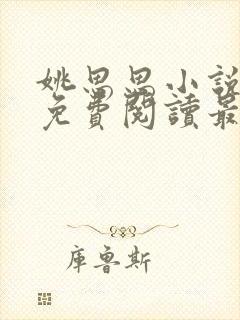 姚思思小說
免費閱讀最
庫魯斯